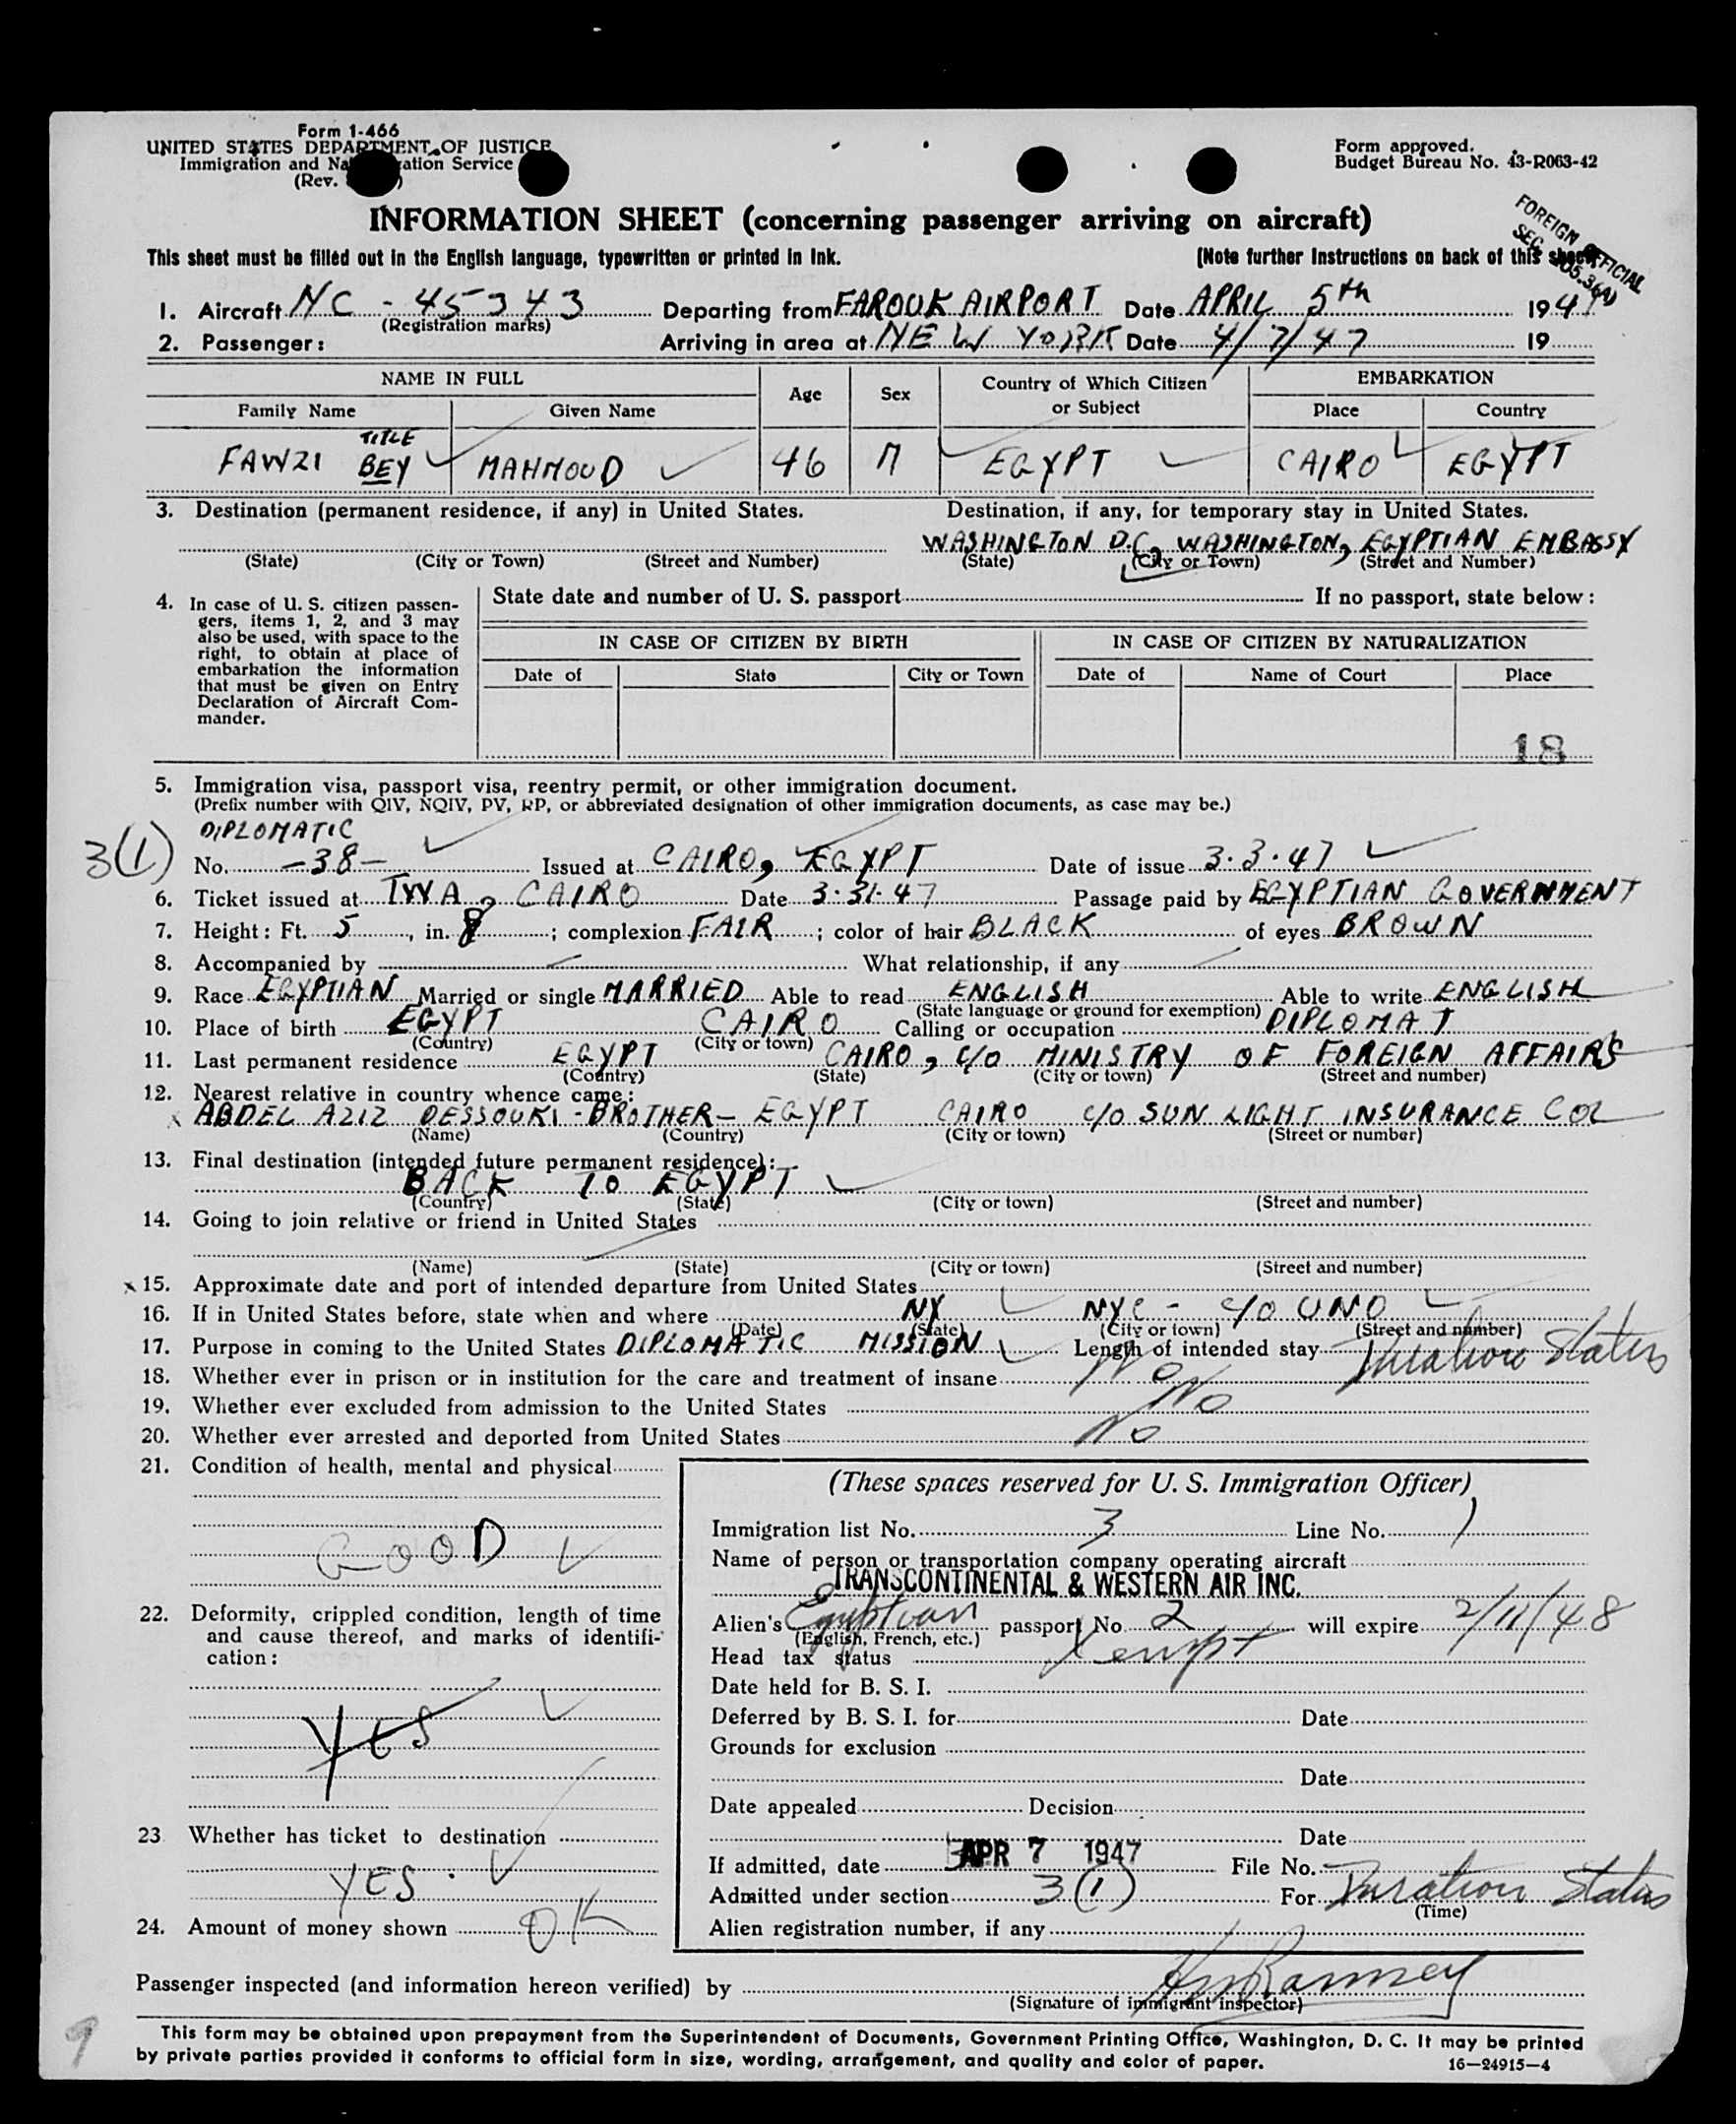 Form 1-466
UNITED STATES DEPARTMENT OF JUSTICE
Immigration and Na ation Service
(Rev. )
Form approved.
Budget Bureau No. 43-R063-42
INFORMATION SHEET (concerning passenger arriving on aircraft)
FOREIGN OFFICIAL
SEC.
This sheet must be filled out in the English language, typewritten or printed in ink. (Note further instructions on back of this sheet)
1. Aircraft NC - 45343 Departing from FAROUK AIRPORT Date APRIL 5th 1947
(Registration marks)
2. Passenger: Arriving in area at NEW YORK Date 4/7/47 19
NAME IN FULL Age Sex Country of Which Citizen or Subject EMBARKATION
Family Name Given Name Place Country
FAWZI TITLE BEY MAHMOUD 46 M EGYPT CAIRO EGYPT
3. Destination (permanent residence, if any) in United States. Destination, if any, for temporary stay in United States.
WASHINGTON D.C, WASHINGTON, EGYPTIAN EMBASSY
(State) (City or Town) (Street and Number) (State) (City or Town) (Street and Number)
4. In case of U. S. citizen passen-
gers, items 1, 2, and 3 may
also be used, with space to the
right, to obtain at place of
embarkation the information
that must be given on Entry
Declaration of Aircraft Com-
mander.
State date and number of U. S. passport If no passport, state below:
IN CASE OF CITIZEN BY BIRTH IN CASE OF CITIZEN BY NATURALIZATION
Date of State City or Town Date of Name of Court Place
18
5. Immigration visa, passport visa, reentry permit, or other immigration document.
(Prefix number with QIV, NQIV, PV, RP, or abbreviated designation of other immigration documents, as case may be.)
DIPLOMATIC
3(1) No. -38- Issued at CAIRO, EGYPT Date of issue 3.3.47
6. Ticket issued at TWA, CAIRO Date 3.31.47 Passage paid by EGYPTIAN GOVERNMENT
7. Height: Ft. 5, in. 8; complexion FAIR; color of hair BLACK of eyes BROWN
8. Accompanied by What relationship, if any
9. Race EGYPTIAN Married or single MARRIED Able to read ENGLISH Able to write ENGLISH
(State language or ground for exemption)
10. Place of birth EGYPT CAIRO Calling or occupation DIPLOMAT
(Country) (City or town)
11. Last permanent residence EGYPT CAIRO, C/O MINISTRY OF FOREIGN AFFAIRS
(Country) (State) (City or town) (Street and number)
12. Nearest relative in country whence came:
x ABDEL AZIZ DESSOUKI - BROTHER - EGYPT CAIRO C/O SUN LIGHT INSURANCE CO
(Name) (Country) (City or town) (Street or number)
13. Final destination (intended future permanent residence):
BACK TO EGYPT
(Country) (State) (City or town) (Street and number)
14. Going to join relative or friend in United States
(Name) (State) (City or town) (Street and number)
x 15. Approximate date and port of intended departure from United States
16. If in United States before, state when and where NY NYC - C/O UNO
(Date) (State) (City or town) (Street and number)
17. Purpose in coming to the United States DIPLOMATIC MISSION Length of intended stay Duration Status
18. Whether ever in prison or in institution for the care and treatment of insane No
19. Whether ever excluded from admission to the United States No
20. Whether ever arrested and deported from United States No
21. Condition of health, mental and physical
GOOD
22. Deformity, crippled condition, length of time
and cause thereof, and marks of identifi-
cation:
YES
23 Whether has ticket to destination
YES.
24. Amount of money shown OK
(These spaces reserved for U. S. Immigration Officer)
Immigration list No. 3 Line No. 1
Name of person or transportation company operating aircraft
TRANSCONTINENTAL & WESTERN AIR INC.
Alien's Egyptian passport No. 2 will expire 2/11/48
(English, French, etc.)
Head tax status Xempt
Date held for B. S. I.
Deferred by B. S. I. for Date
Grounds for exclusion
Date
Date appealed Decision
Date
If admitted, date APR 7 1947 File No.
Admitted under section 3(1) For Duration Status
(Time)
Alien registration number, if any
Passenger inspected (and information hereon verified) by
(Signature of immigrant inspector)
This form may be obtained upon prepayment from the Superintendent of Documents, Government Printing Office, Washington, D. C. It may be printed
by private parties provided it conforms to official form in size, wording, arrangement, and quality and color of paper. 16—24915-4
9